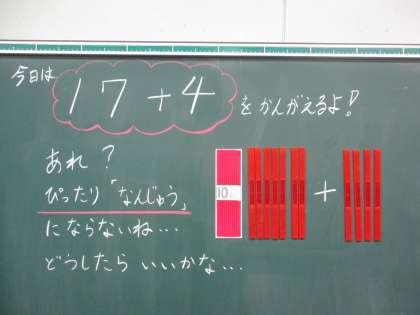 今日は 17+4 をかんがえるよ!
あれ?
ぴったり「なんじゅう」
にならないね…
どうしたら いいかな…
10
+